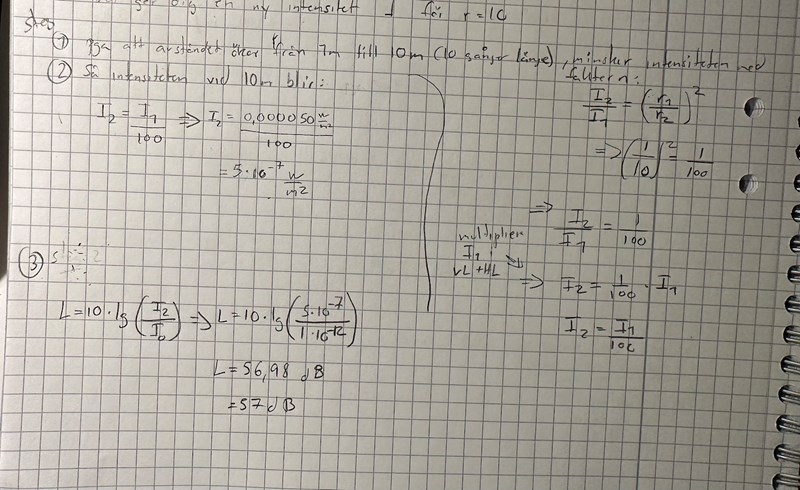 en ny intensitet för r=10
steg
① Pga att avståndet ökar från 1m till 10m (10 gånger längre), minskar intensiteten med faktorn:
② Så intensiteten vid 10m blir:
I₂ = I₁/100 ⇒ I₂ = 0,000050 W/m² / 100
= 5·10⁻⁷ W/m²
I₂/I₁ = (r₁/r₂)²
⇒ (1/10)² = 1/100
⇒ I₂/I₁ = 1/100
multiplicer
I₁ i
VL + HL
⇒ I₂ = 1/100 · I₁
I₂ = I₁/100
③
L = 10·lg(I₂/I₀) ⇒ L = 10·lg(5·10⁻⁷/1·10⁻¹²)
L = 56,98 dB
= 57 dB